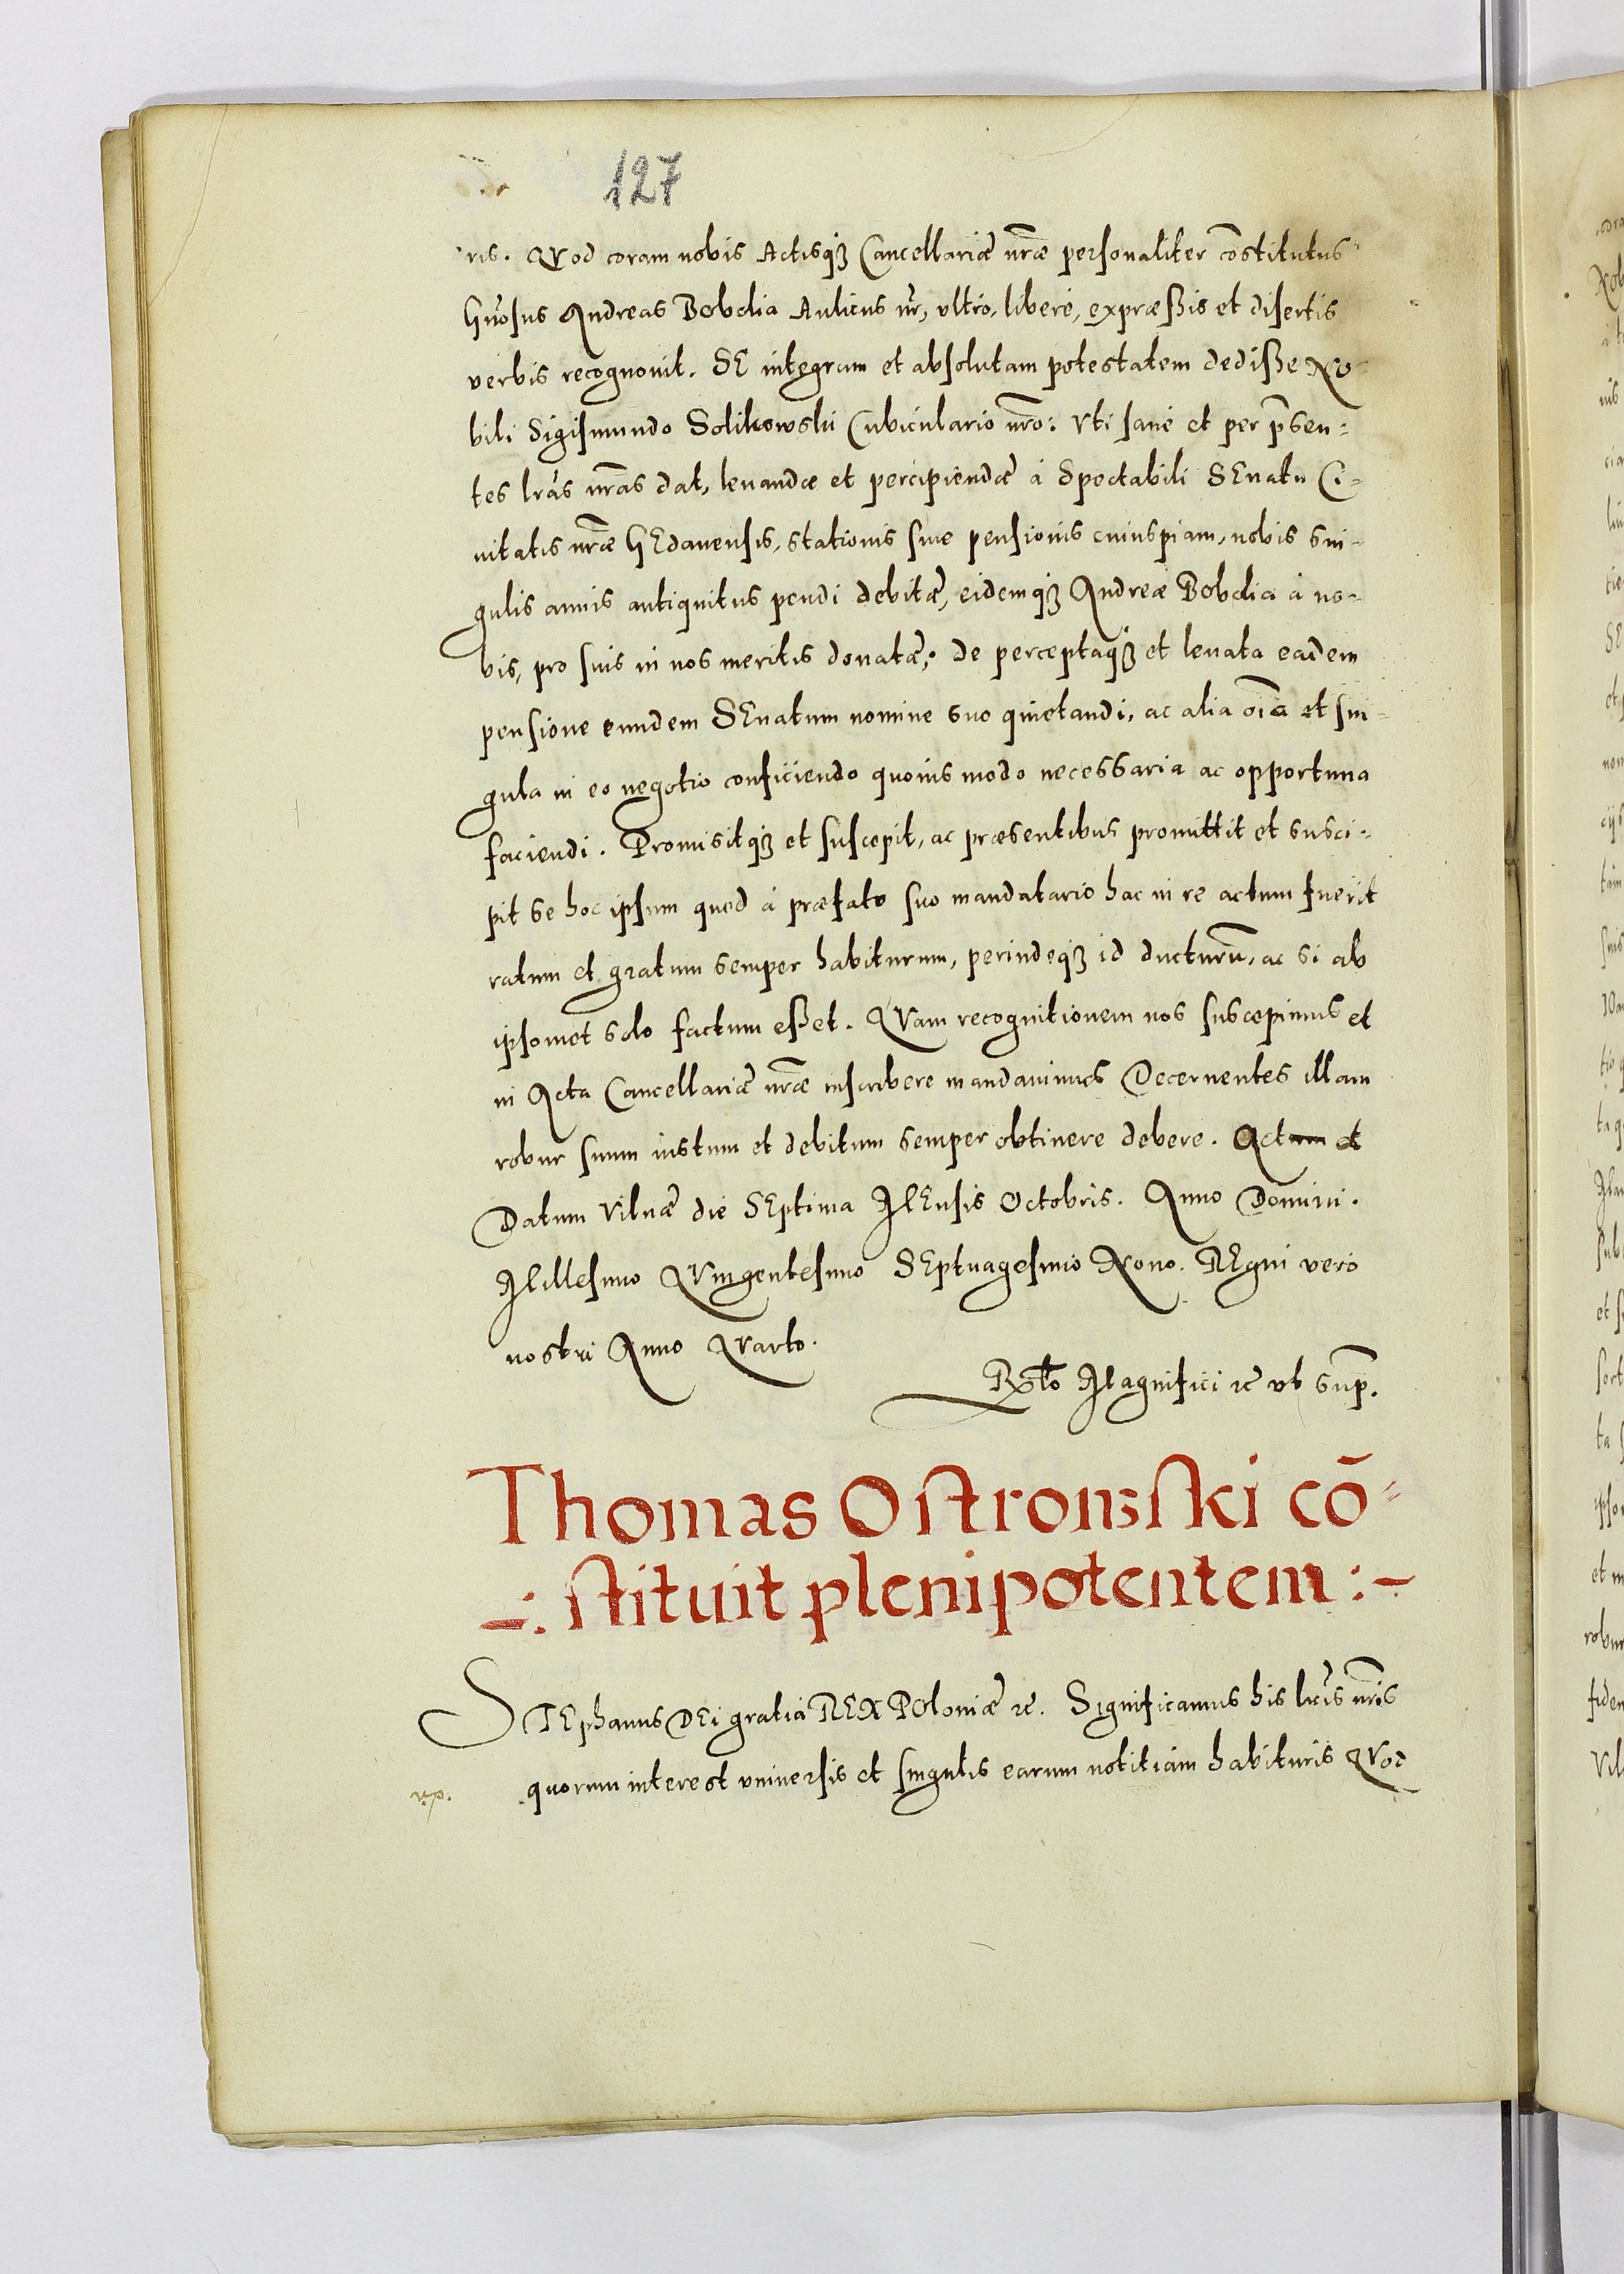 127
ris. QVod coram nobis Actisq₃ Cancellariæ nr̃æ personaliter cõstitutus
Gñosus Andreas Bobolia Aulicus nr̃, vltrò, liberè, expræßis et disertis
verbis recognouit. SE integram et absolutam potestatem dediße No
bili Sigismundo Solikowski Cubiculario nr̃o: vti sanè et per p̃sen:
tes lr̃as nr̃as dat, leuandæ et percipiendæ à Spectabili SEnatu Ci-
uitatis nr̃æ GEdanensis, stationis siue pensionis cuiuspiam, nobis sin-
gulis annis antiquitus pendi debitæ, eidemq₃ Andreæ Bobolia à no-
bis, pro suis in nos meritis donatæ: de perceptaq₃ et leuata eadem
pensione eundem SEnatum nomine suo quietandi, ac alia oĩa et sin-
gula in eo negotio conficiendo quouis modo necessaria ac opportuna
faciendi. Promisitq₃ et suscepit, ac præsentibus promittit et susci-
pit se hoc ipsum quod à præfato suo mandatario hac in re actum fuerit
ratum et gratum semper habiturum, perindeq₃ id ducturũ, ac si ab
ipsomet solo factum eßet. QVam recognitionem nos suscepimus et
in Acta Cancellariæ nr̃æ inscribere mandauimus Decernentes illam
robur suum iustum et debitum semper obtinere debere. Actum et
Datum Vilnæ die SEptima MEnsis Octobris. Anno Domini.
Millesimo QVingentesimo SEptuagesimo Nono. REgni verò
nostri Anno QVarto.
Rẽlo Magnifici ꝛc vt sup̃.
Thomas Ostrowski cõ-
-:stituit plenipotentem:-
STEphanus DEi gratia REX POloniæ ꝛc. Significamus his lr̃is nr̃is
quorum interest vniuersis et singulis earum notitiam habituris QVod